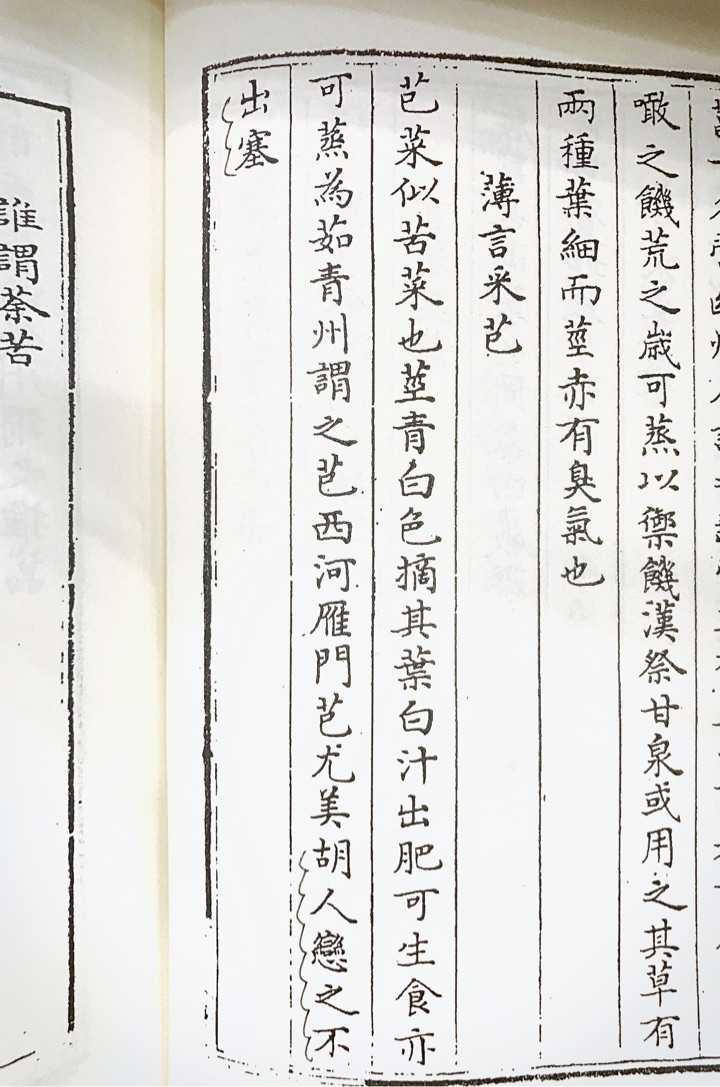 噉之饑荒之歲可蒸以禦饑漢祭甘泉或用之其草有
兩種葉細而莖赤有臭氣也
薄言采芑
芑菜似苦菜也莖青白色摘其葉白汁出肥可生食亦
可蒸為茹青州謂之芑西河雁門芑尤美胡人戀之不
出塞
誰謂荼苦